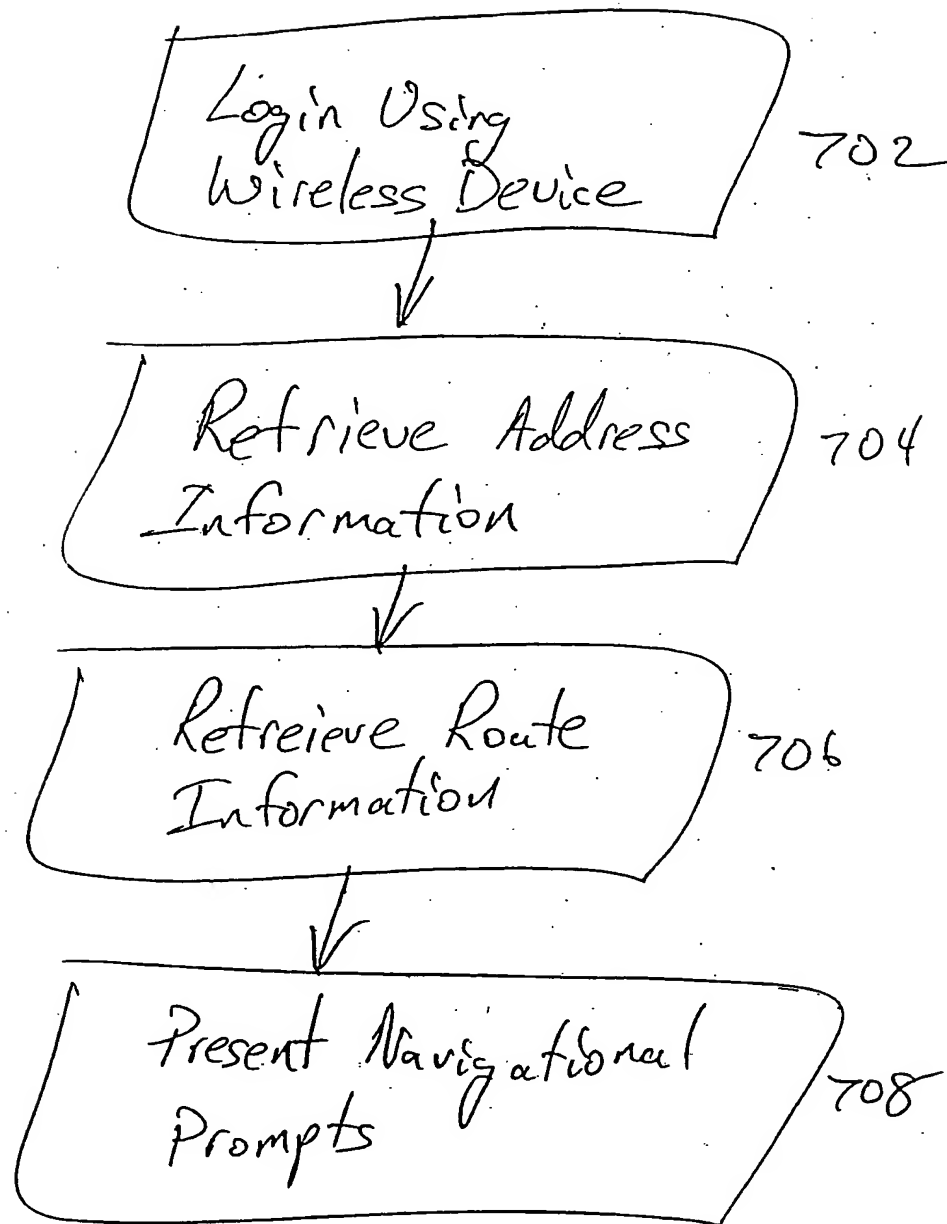 Login Using
Wireless Device
702
Retrieve Address
Information
704
Retreieve Route
Information
706
Present Navigational
Prompts
708